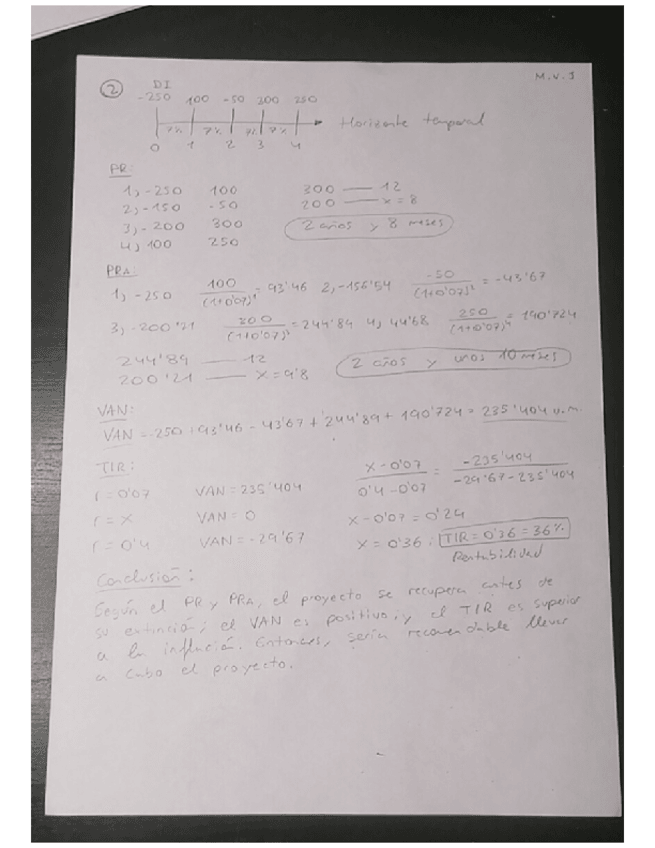 M.V.J
② DI
-250 100 -50 300 250
7% 7% % 7% Horizonte temporal
0 1 2 3 4
PR:
1) -250 100 300 — 12
2) -150 -50 200 — x = 8
3) -200 300 2 años y 8 meses
4) 100 250
PRA:
1) -250 100/(1+0'07)¹ = 93'46 2) -156'54 -50/(1+0'07)² = -43'67
3) -200'21 300/(1+0'07)³ = 244'89 4) 44'68 250/(1+0'07)⁴ = 190'724
244'89 — 12
200'21 — x = 9'8 2 años y unos 10 meses
VAN:
VAN = -250 + 93'46 - 43'67 + 244'89 + 190'724 = 235'404 u.m.
TIR:
r = 0'07 VAN = 235'404 x - 0'07/0'4 - 0'07 = -235'404/-29'67 - 235'404
r = x VAN = 0 x - 0'07 = 0'29
r = 0'4 VAN = -29'67 x = 0'36; TIR = 0'36 = 36%
Rentabilidad
Conclusión:
Según el PR y PRA, el proyecto se recupera antes de
su extinción; el VAN es positivo; y el TIR es superior
a la inflación. Entonces, sería recomendable llevar
a cabo el proyecto.